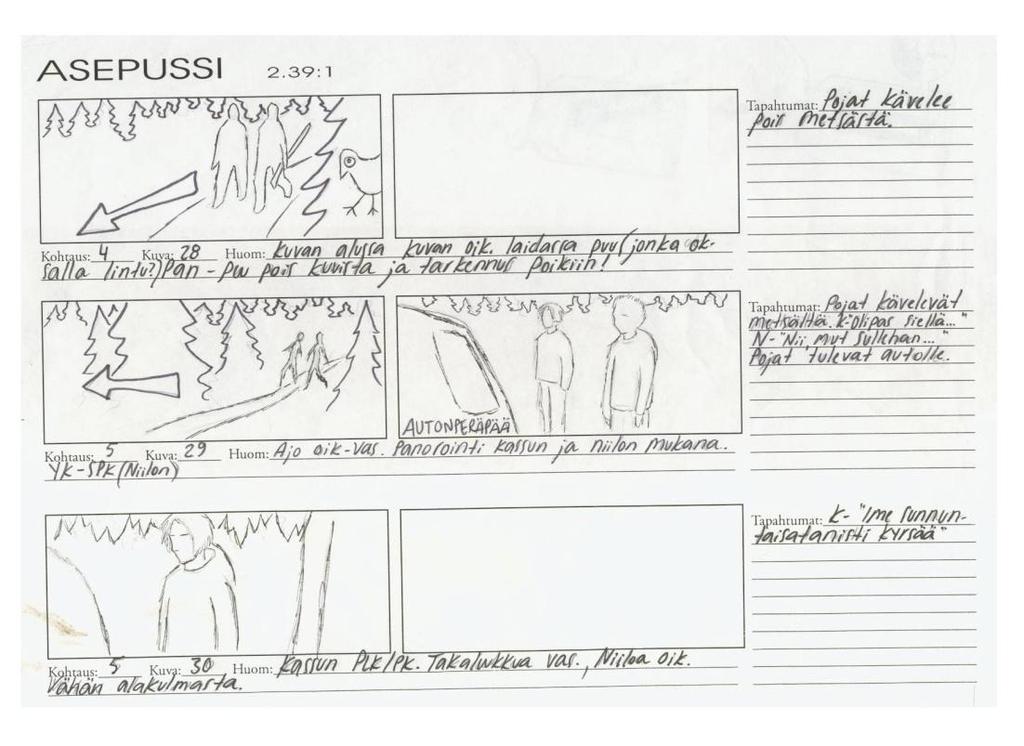 ASEPUSSI 2.39:1
Tapahtumat: Pojat kävelee
pois metsästä.
Kohtaus: 4 Kuva: 28 Huom: Kuvan alussa kuvan oik. laidassa puu (jonka ok-
salla lintu?) Pan - puu pois kuvista ja tarkennus poikiin!
Tapahtumat: Pojat kävelevät
metsältä. K-"Olipas siellä..."
N- "Nii, mut sullehan..."
Pojat tulevat autolle.
AUTONPERÄPÄÄ
Kohtaus: 5 Kuva: 29 Huom: Ajo oik-vas. Panorointi kassun ja niilon mukana.
YK-SPK (Niilon)
Tapahtumat: K- "Ime sunnun-
taisatanisti kyrsää"
Kohtaus: 5 Kuva: 30 Huom: Kassun PLK/PK. Takaluukkua vas., Niiloa oik.
Vähän alakulmasta.